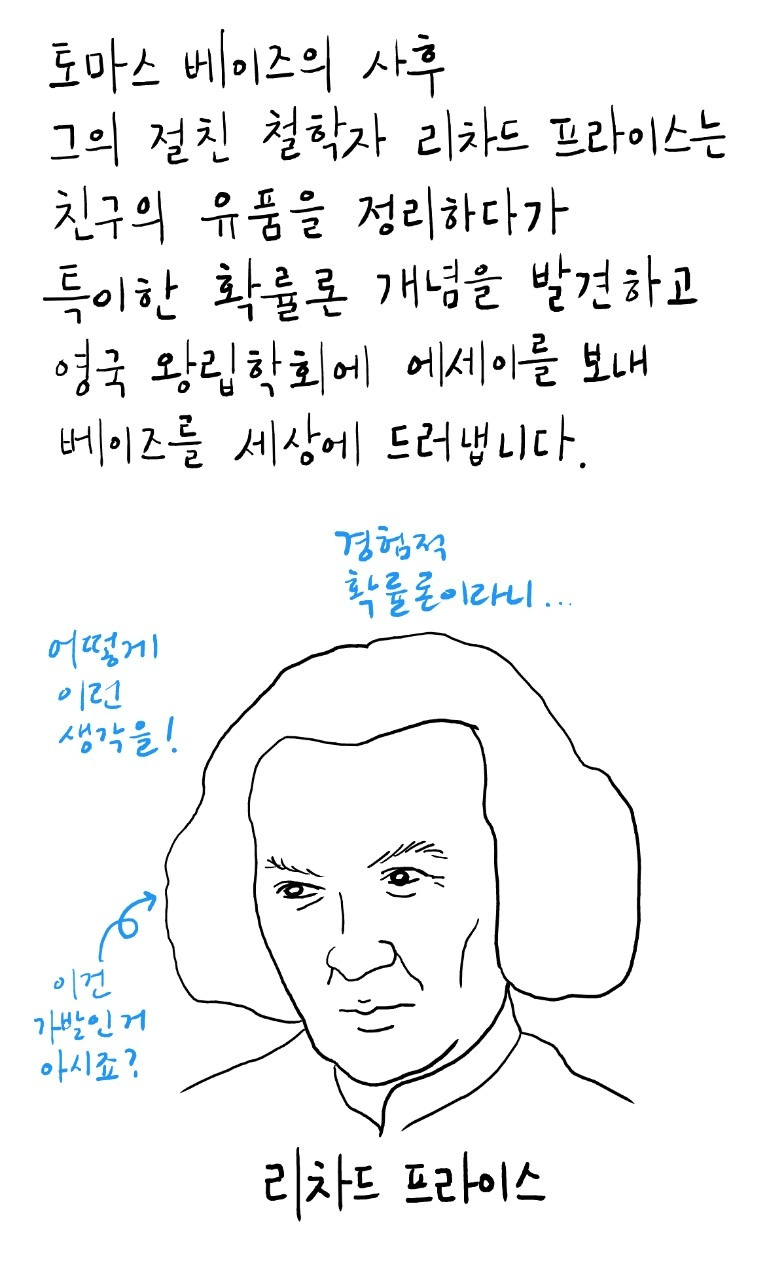 토마스 베이즈의 사후
그의 절친 철학자 리차드 프라이스는
친구의 유품을 정리하다가
특이한 확률론 개념을 발견하고
영국 왕립학회에 에세이를 보내
베이즈를 세상에 드러냅니다.
경험적
확률론이라니...
어떻게
이런
생각을!
이건
가발인거
아시죠?
리차드 프라이스